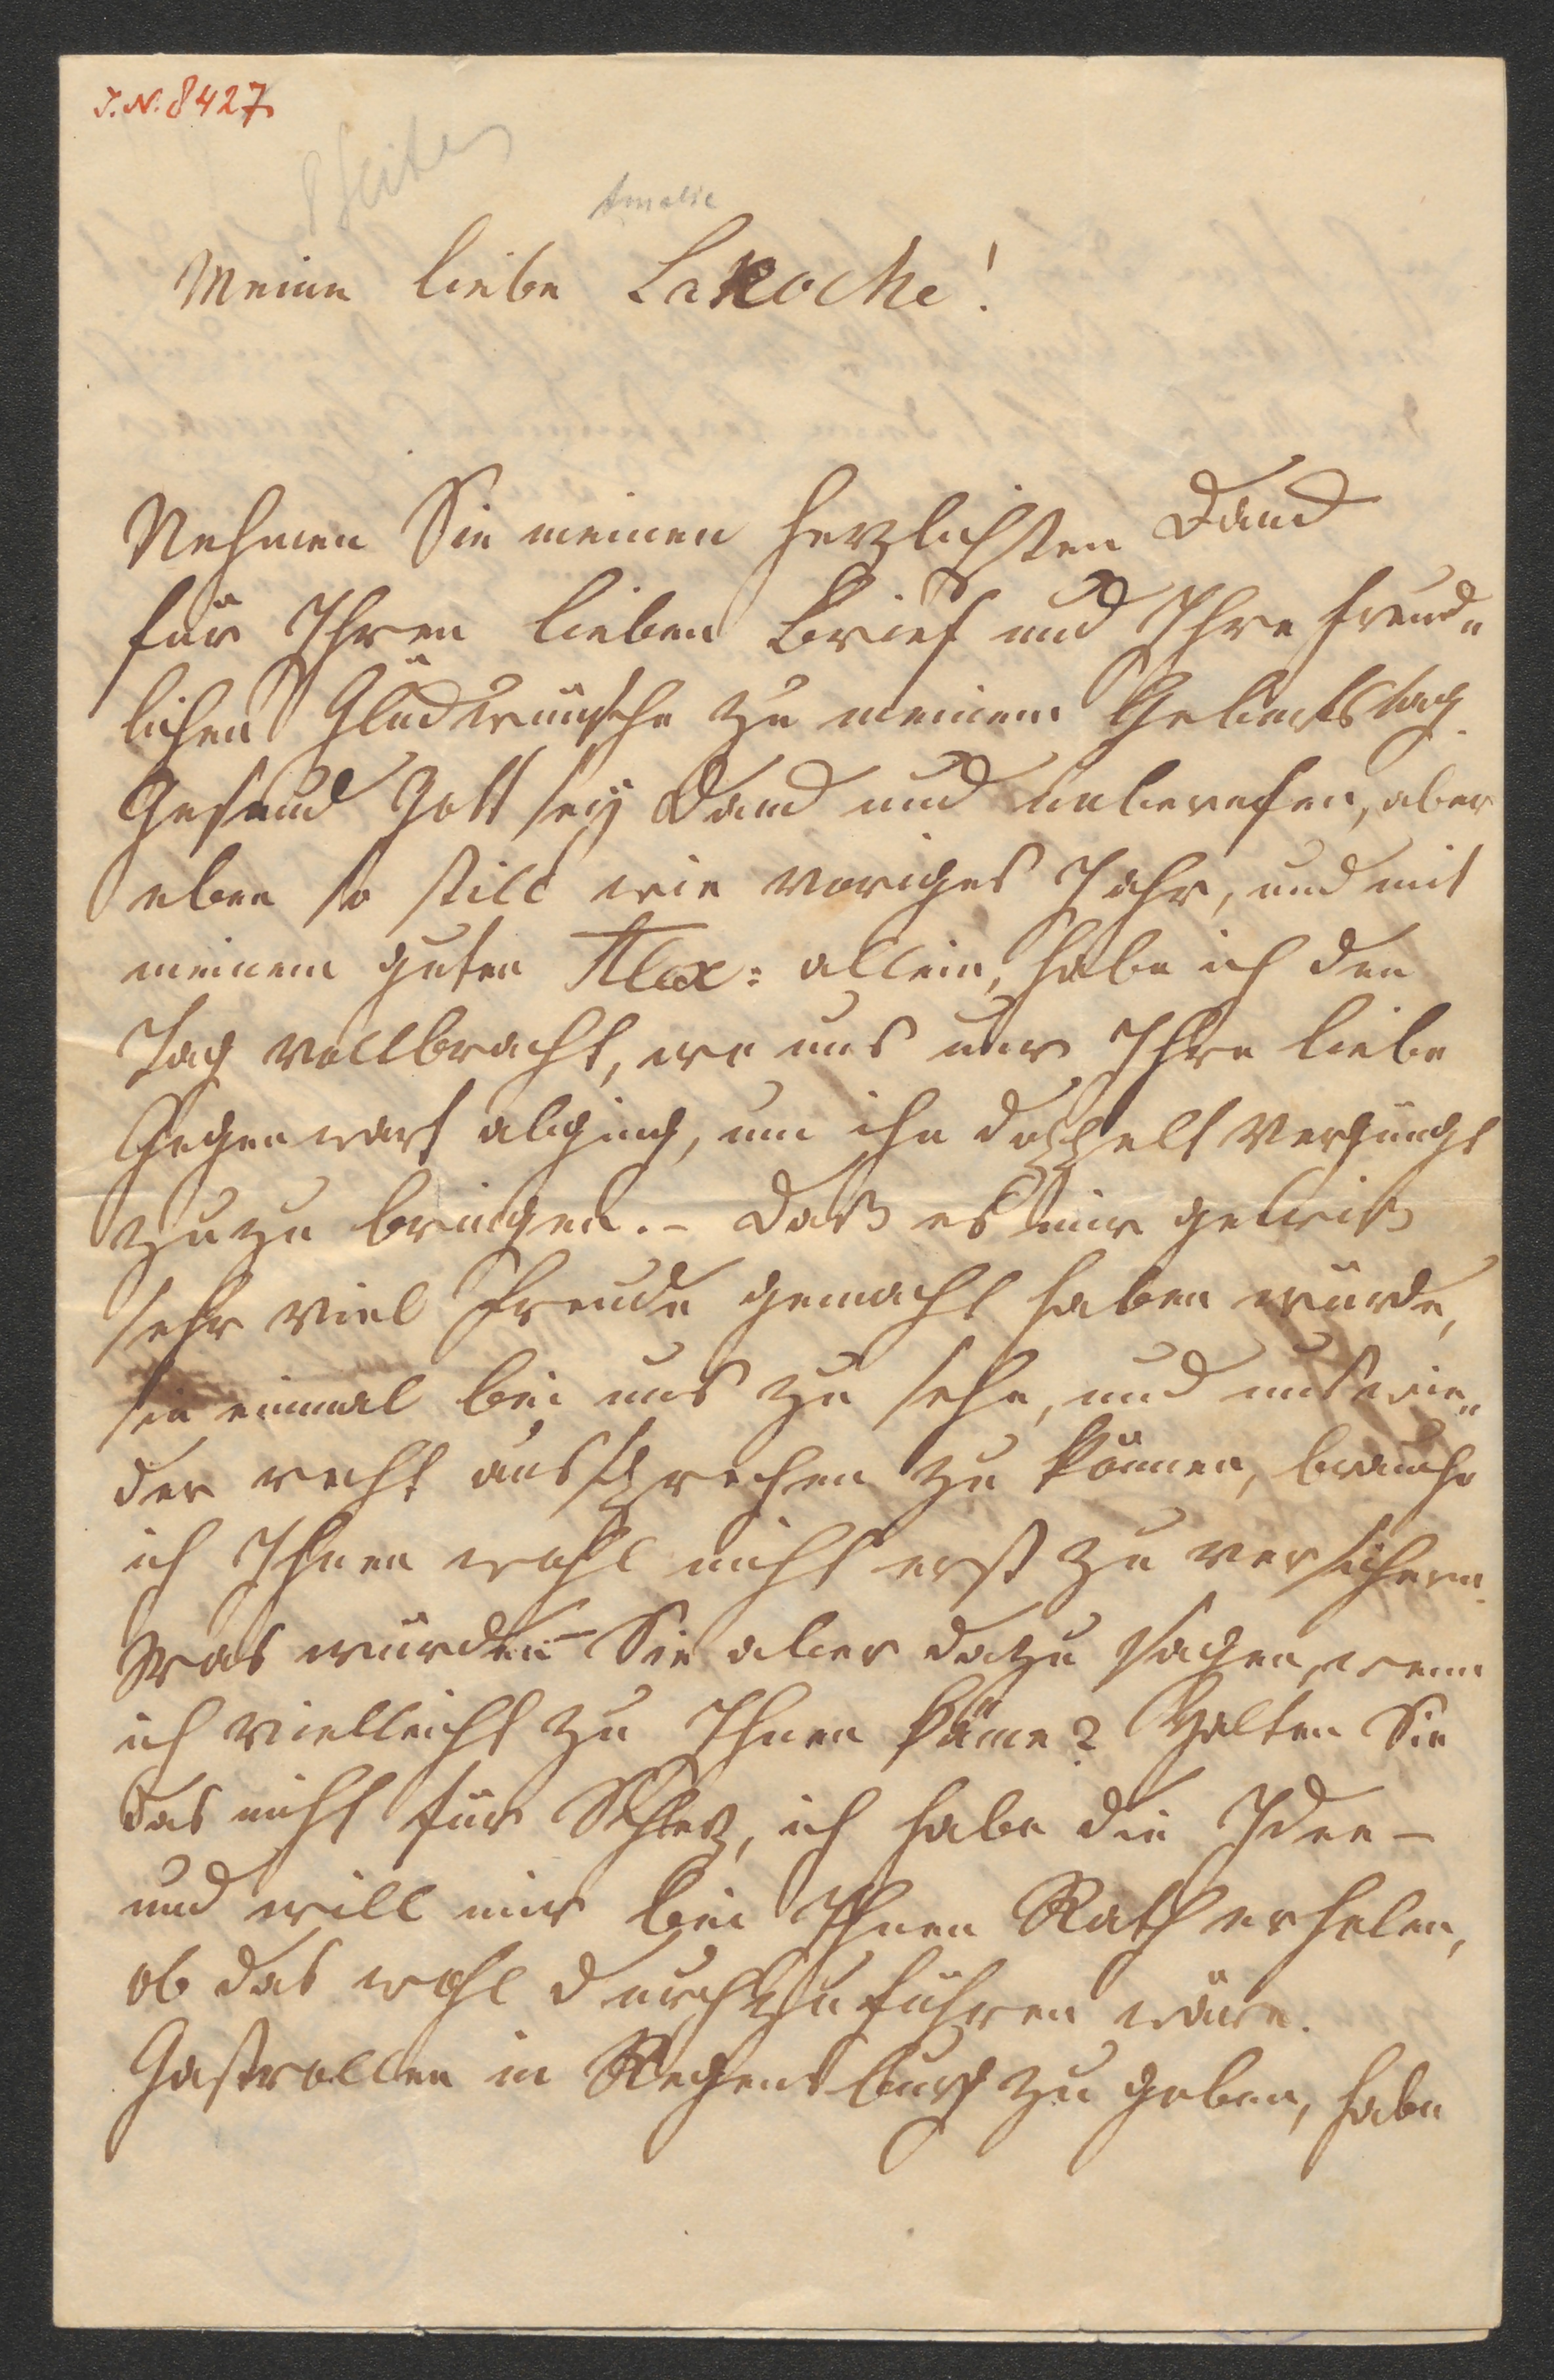 I.N. 8427
8 Seiten
Amalie
Meine liebe LaRoche!
Nehmen Sie meinen herzlichsten Dank
für Ihren lieben Brief und Ihre freund„
lichen Glückwünsche zu meinem Geburtstag.
Gesund Gott sey Dank und unberufen, aber
eben so still wie voriges Jahr, und mit
meinem guten Alex: allein, habe ich den
Tag vollbracht, wo uns nur Ihre liebe
Gegenwart abging, um ihn doppelt vergnügt
zuzu bringen. – Daß es mir gewiß
sehr viel Freude gemacht haben würde,
sie einmal bei uns zu sehn, und uns wie„
der recht aussprechen zu können, brauche
ich Ihnen wohl nicht erst zu versichern.
Was würden Sie aber dazu sagen, wenn
ich vielleicht zu Ihnen käme? Halten Sie
das nicht für Scherz, ich habe die Idee –
und will mir bei Ihnen Rath erholen,
ob das wohl durchzuführen wäre.
Gastrollen in Regensburg zu geben, habe